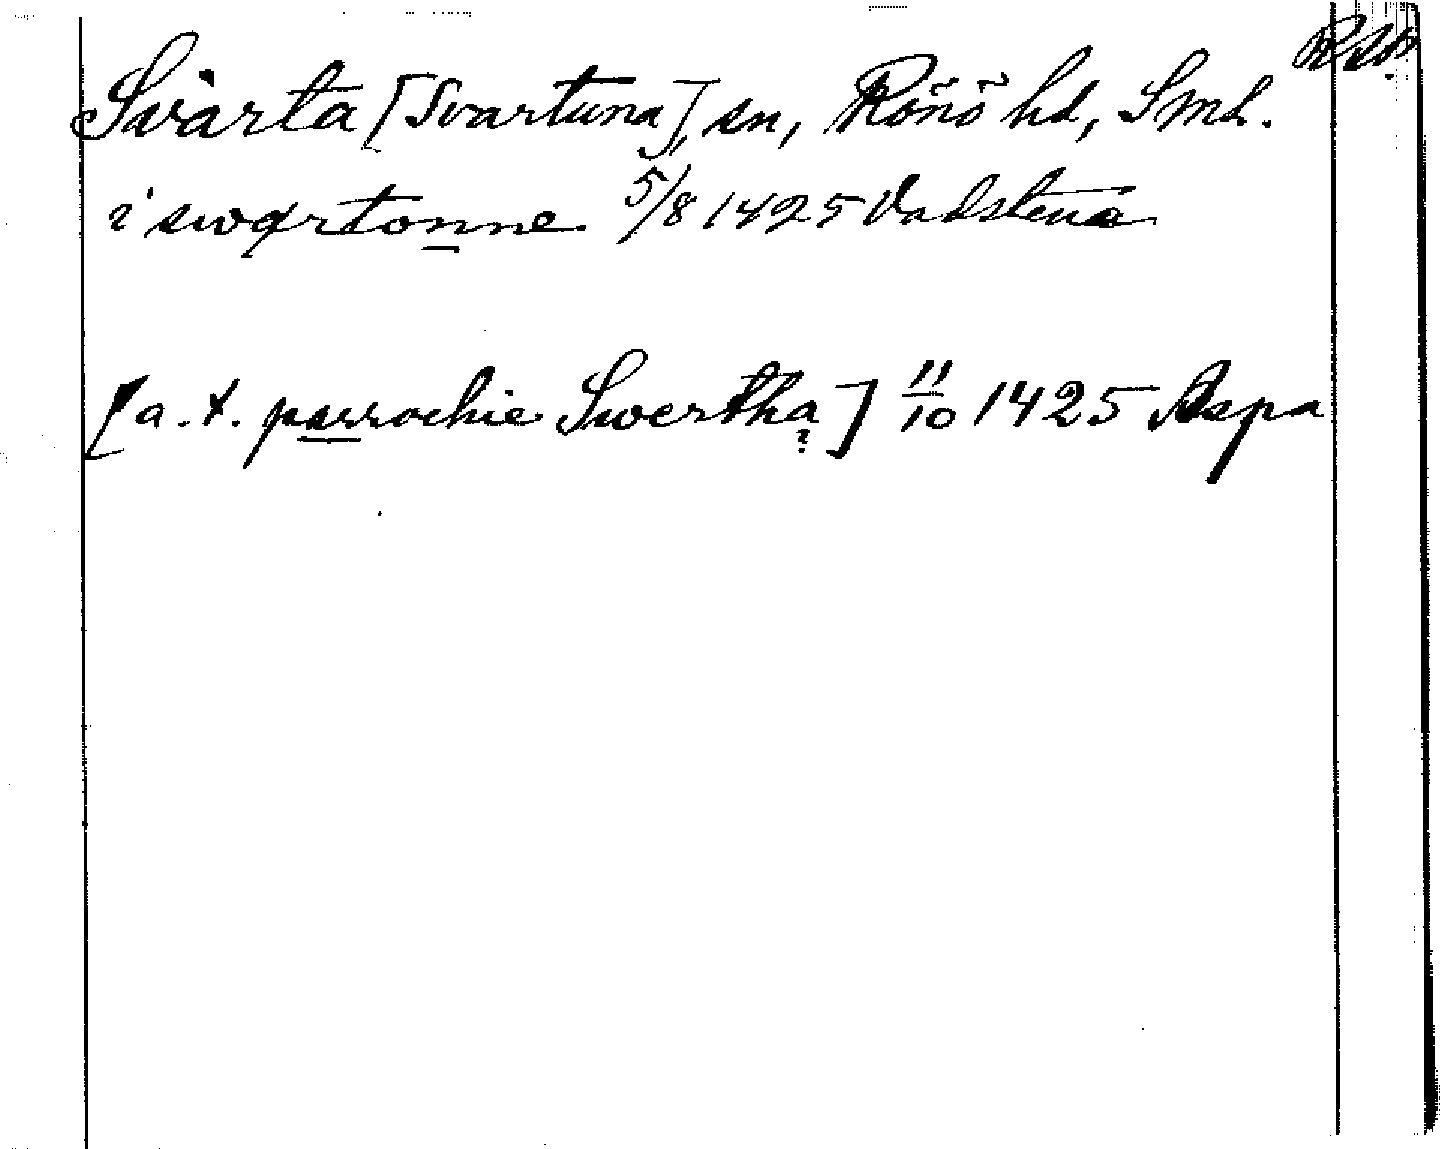 Svärta [Svartuna], sn, Rönö hd, Sml.
i swartonne 5/8 1425 Vadstena
[a. t. parrochie Swertha] 11/10 1425 Aspa